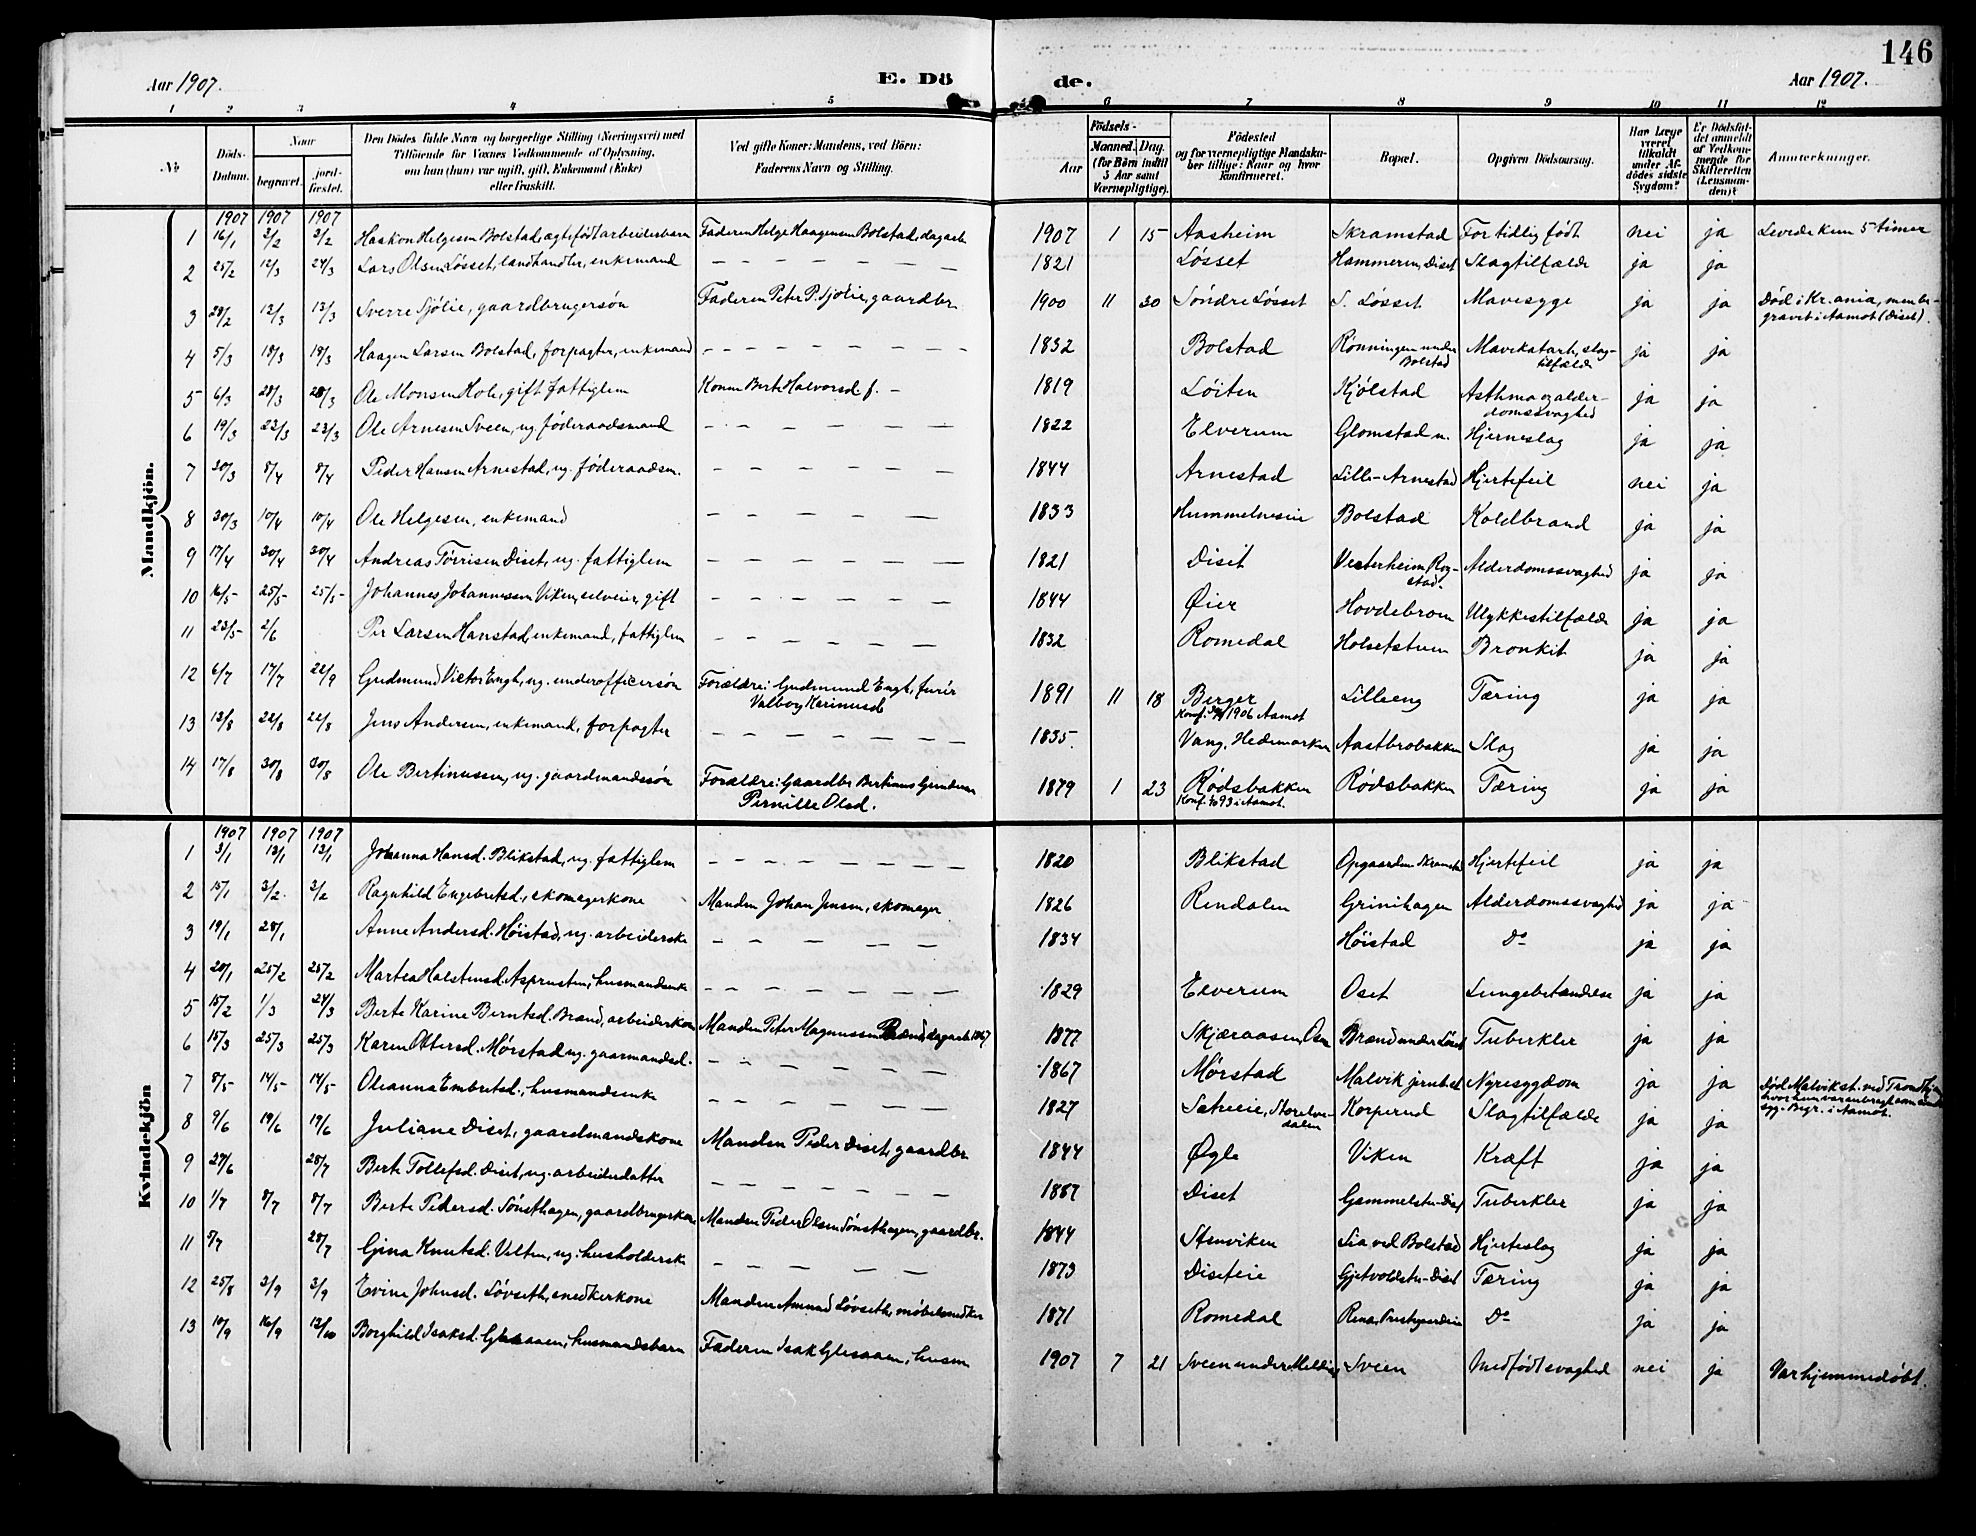 146
Aar 1907. E. Dö de. Aar 1907.
1 2 3 4 5 6 7 8 9 10 11 12
No Döds-Datum. Naar begravet. jord-fæstet. Den Dödes fulde Navn og borgerlige Stilling (Næringsvei) med Tilföiende for Voxnes Vedkommende af Oplysning, om han (hun) var ugift, gift, Enkemand (Enke) eller fraskilt. Ved gifte Koner: Mandens, ved Börn: Faderens Navn og Stilling. Födsels- Aar Maaned. Dag. (for Börn indtil 5 Aar samt Værnepligtige). Födested og for værnepligtige Mandskaber tillige: Naar og hvor konfirmeret. Bopæl. Opgiven Dödsaarsag. Har Læge været tilkaldt under Afdödes sidste Sygdom? Er Dödsfaldet anmeldt af Vedkommende for Skifteretten (Lensmanden)? Anmerkninger.
Mandkjön.
1907 1907 1907
1 16/1 3/2 3/2 Haakon Helgesen Bolstad, ægtefødt arbeiderbarn Faderen Helge Haagensen Bolstad, dagarb 1907 1 15 Aasheim Skramstad For tidlig født nei ja Levede kun 5 timer
2 25/2 12/3 24/3 Lars Olsen Løsset, landhandler, enkemand — — — 1821 Løsset Hammeren, Diset Slagtilfælde ja ja
3 28/2 12/3 13/3 Sverre Sjølie, gaardbrugersøn Faderen Peter P. Sjølie, gaardbr. 1900 11 30 Søndre Løsset S. Løsset Mavesyge ja ja Død i Kr.ania, men begravet i Aamot (Diset).
4 5/3 18/3 18/3 Haagen Larsen Bolstad, forpagter, enkemand — — — 1832 Bolstad Rønningen under Bolstad Mavekatarh, slagtilfælde ja ja
5 6/3 28/3 28/3 Ole Monsen Hole, gift fattiglem Konen Berte Halvorsd. f. — 1819 Løiten Kjølstad Asthma og alderdomssvaghed ja ja
6 19/3 23/3 23/3 Ole Arnesen Sveen, ug. føderaadsmand — — — 1822 Elverum Glomstad n. Hjerneslag ja ja
7 30/3 8/4 8/4 Peder Hansen Arnestad, ug. føderaadsm. — — — 1844 Arnestad Lille-Arnestad Hjertefeil nei ja
8 30/3 10/4 10/4 Ole Helgesen, enkemand — — — 1833 Hummelneseie Bolstad Koldbrand ja ja
9 17/4 30/4 30/4 Andreas Tørrisen Diset, ug. fattiglem — — — 1821 Diset Vesterheim, Rogstad. Alderdomssvaghed ja ja
10 16/5 25/5 25/5 Johannes Johannessen Viken, selveier, gift — — — 1844 Øier Hovdebroen Ulykkestilfælde ja ja
11 23/5 2/6 Per Larsen Hanstad, enkemand, fattiglem — — — 1832 Romedal Holsetstuen Bronkit ja ja
12 6/7 17/7 22/9 Gudmund Victor Engh, ug. underofficersøn Forældre: Gudmund Engh, furér Valborg Karinusd 1891 11 18 Berger Konf. 1906 Aamot Lilleeng Tæring ja ja
13 13/8 22/8 22/8 Jens Andersen, enkemand, forpagter — — — 1835. Vang, Hedemarken Aastbrobakken Slag ja ja
14 17/8 30/8 30/8 Ole Bertinussen, ug. gaardmandssøn Forældre: Gaardbr Bertinus Gundersen Pernille Olsd. 1879 1 23 Rødsbakken Konf. 93 i Aamot. Rødsbakken Tæring ja ja
Kvindekjön
1907 1907 1907
1 3/1 13/1 13/1 Johanna Hansd. Blikstad, ug. fattiglem — — — 1820 Blikstad Opgaarden Skramstad Hjertefeil ja ja
2 15/1 3/2 3/2 Ragnhild Engebretsd., skomagerkone Manden Johan Jensen, skomager 1826 Rendalen Grinihagen Alderdomssvaghed ja ja
3 19/1 28/1 Anne Andersd. Høistad, ug. arbeiderske — — — 1834 Høistad Do ja ja
4 20/1 25/2 25/2 Martea Halstensd. Asprusten, husmandsenke — — — 1829 Elverum Oset Lungebetændelse ja ja
5 15/2 1/3 24/3 Berte Karine Berntsd. Brænd, arbeiderkone Manden Peter Magnussen Brænd, dagarb. 1867 1877 Skjæraasen, Osen Brænd under Løsset Tuberkler ja ja
6 15/3 25/3 25/3 Karen Ottersd. Mørstad ug. gaarmandsd. — — — 1867 Mørstad Malvik jernbst Nyresygdom ja ja Død Malvik st. ved Trondhjem hvor hun var anbragt som sindssyg. Begr. i Aamot.
7 8/5 14/5 14/5 Oleanna Embretsd., husmandsenke — — — 1827 Sætreeie, Storelvedalen Korperud Slagtilfælde ja ja
8 9/6 19/6 19/6 Juliane Diset, gaardmandskone Manden Peder Diset, gaardbr 1844 Øgle Viken Kræft ja ja
9 27/6 28/7 Berte Tollefsd. Diset, ug. arbeiderdatter — — — 1887 Diset Gammelstu-Diset Tuberkler ja ja
10 1/7 8/7 8/7 Berte Pedersd. Sønsthagen, gaardbrugerkone Manden Peder Olsen Sønsthagen, gaardbr. 1844 Stenviken Lia ved Bolstad Hjerteslag ja ja
11 5/7 28/7 Gjina Knutsd. Velten, ug. husholderske — — — 1873 Diseteie Gjetvoldstu-Diset Tæring ja ja
12 25/8 3/9 3/9 Evine Johnsd. Løvseth, snedkerkone Manden Amund Løvseth, møbelsnedker 1871 Romedal Rena, Prestgaardeie Do ja ja
13 10/9 16/9 13/10 Borghild Isaksd. Glesaaen, husmandsbarn Faderen Isak Glesaaen, husm 1907 7 21 Sveen under Melding Sveen Medfødt svaghed nei ja Var hjemmedøbt.